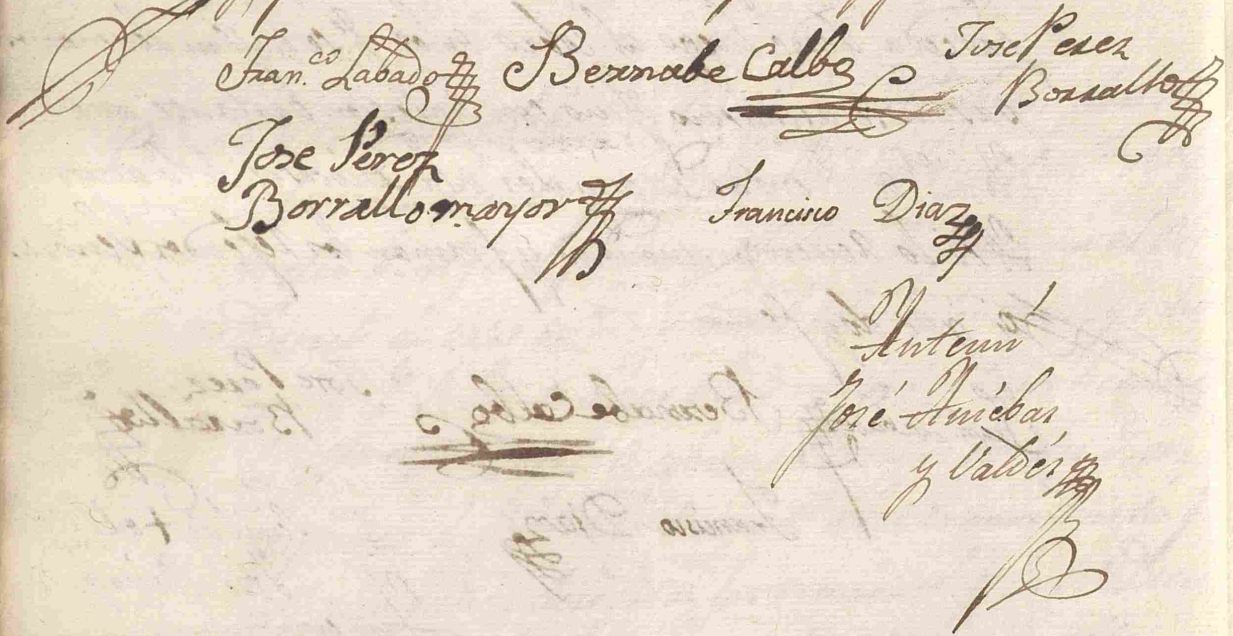 Fran.co Labado Bernabe Calbo Jose Perez
Borrallo
Jose Perez
Borrallo mayor Francisco Diaz
Antemi
José
y Valdés